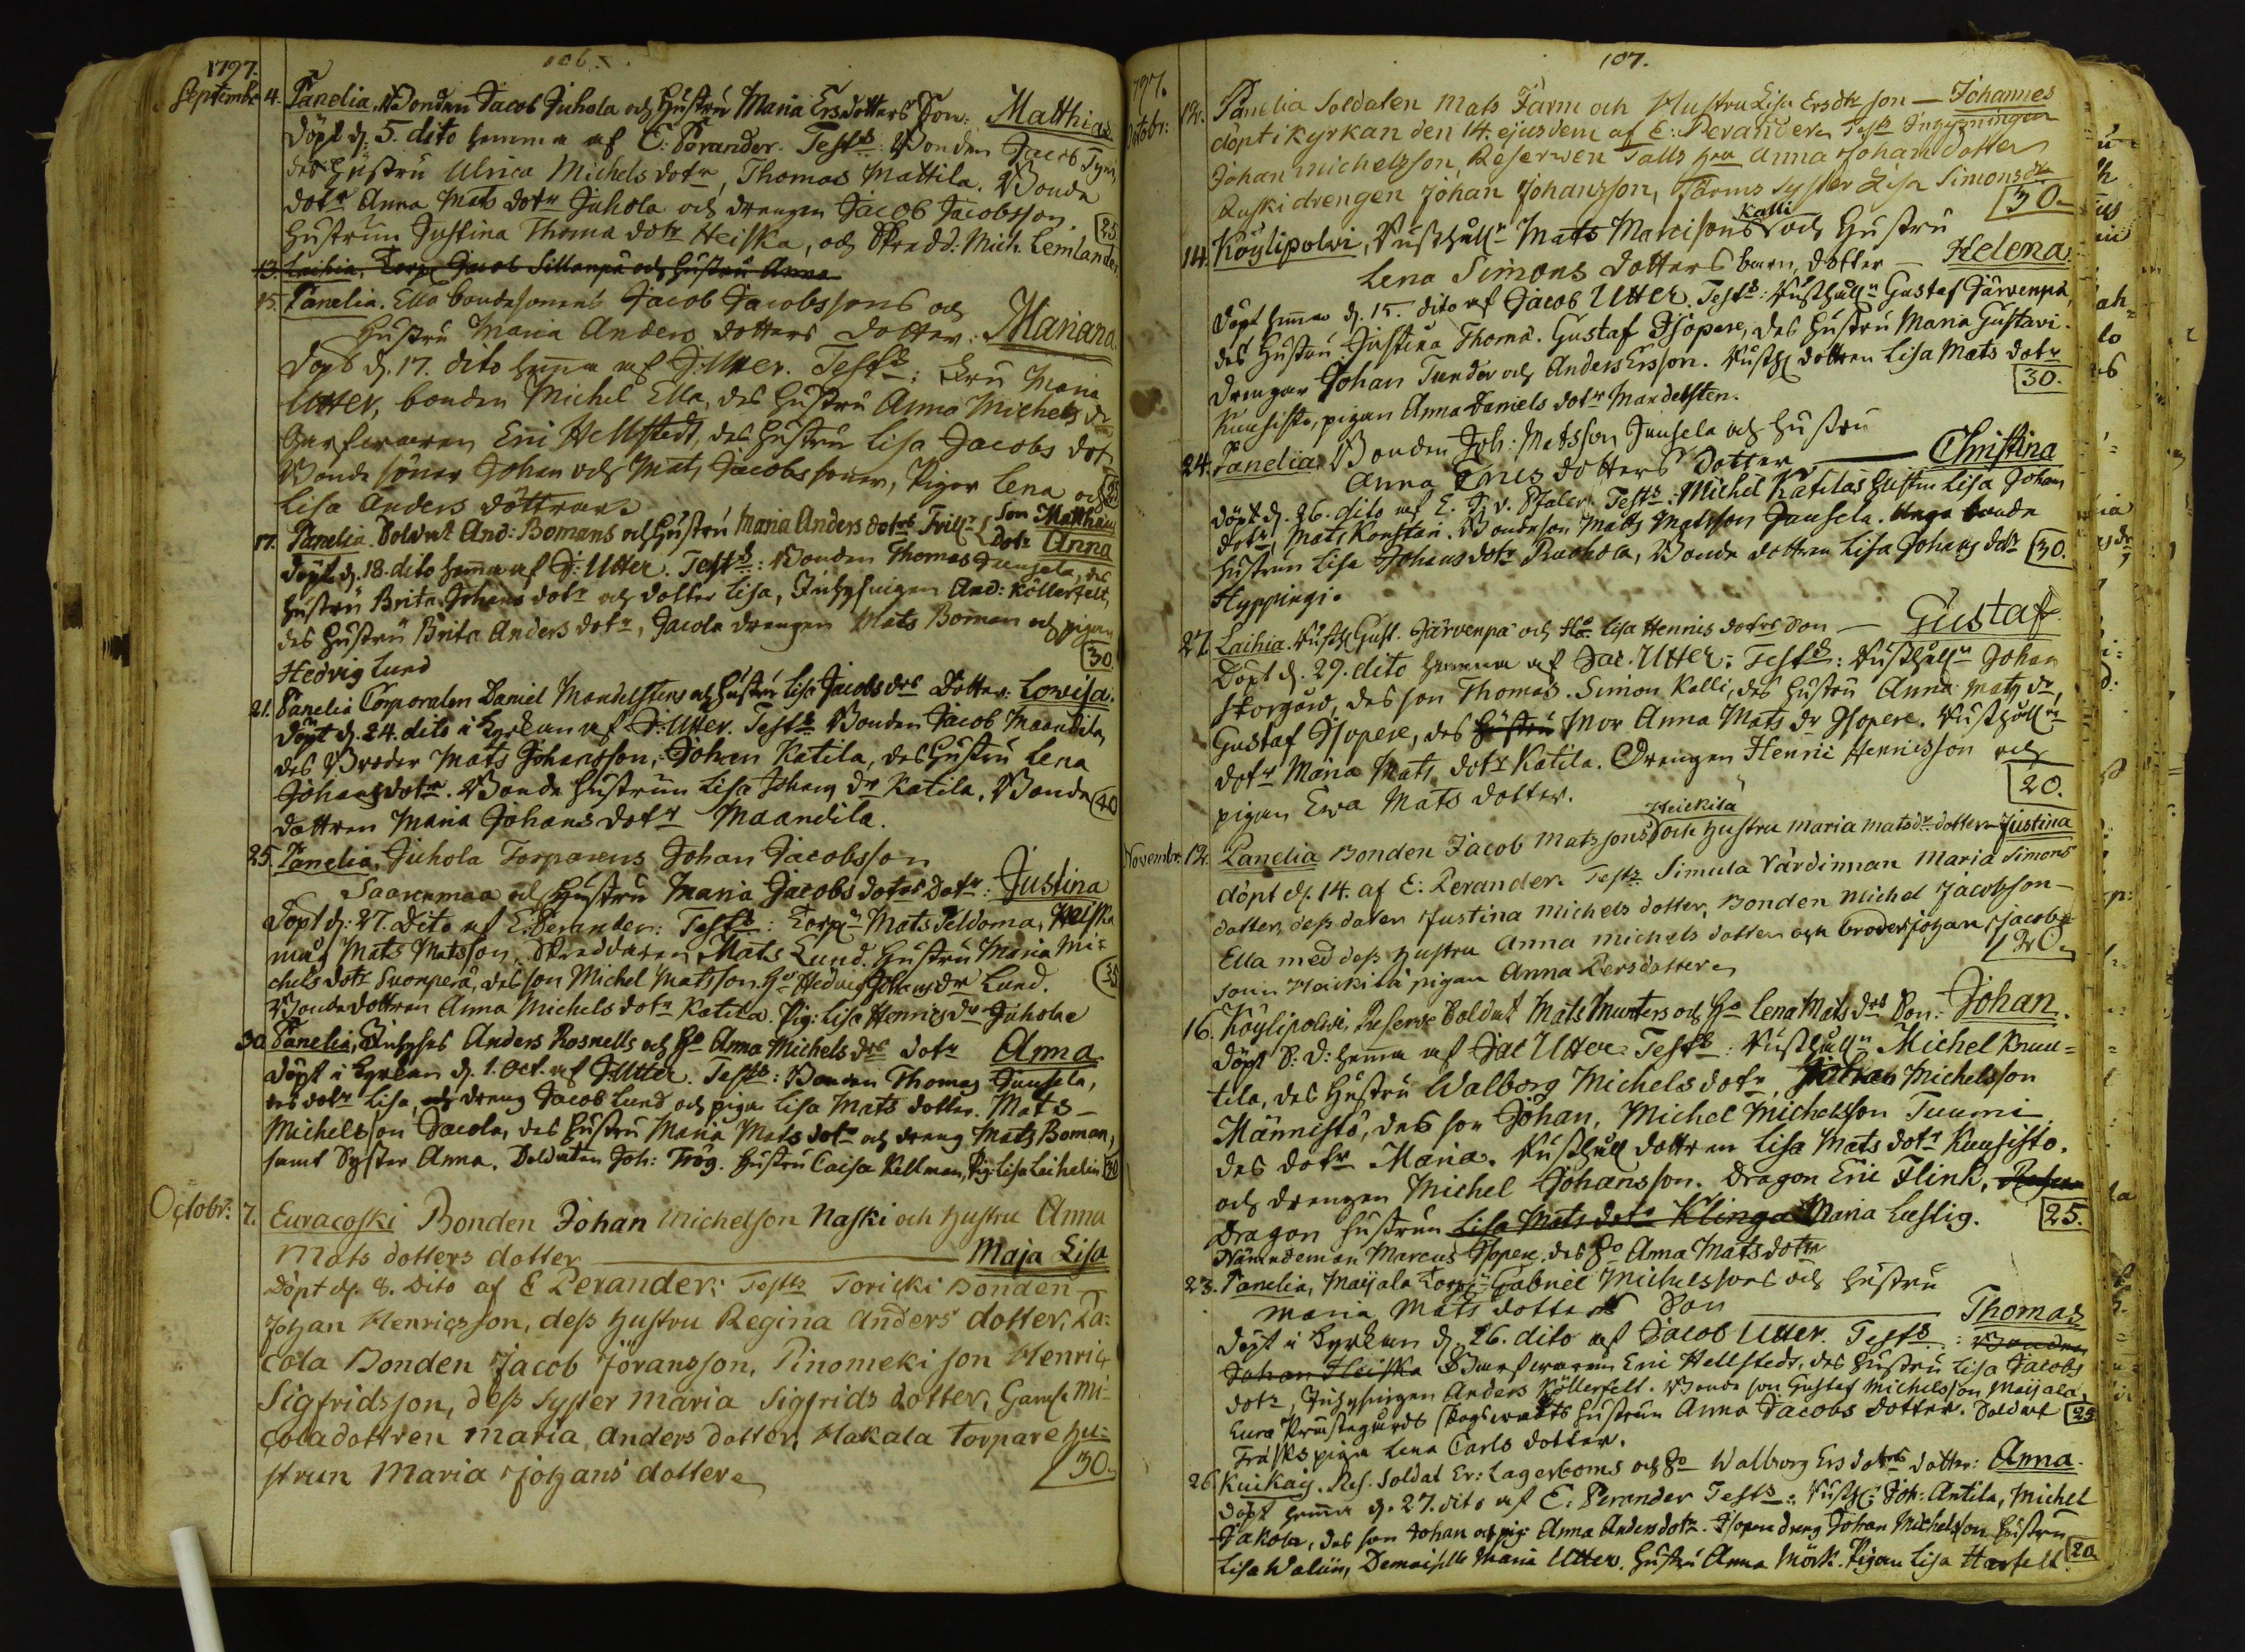 106.
1797.
Septembr 4. Panelia, Bonden Jacob Juhola och Hustru Maria Ersdotters Son: Matthias
döpt d. 5. dito hemma af E: Perander. Test: Bonden Jacob
des Hustru Ulrica Michels dotr, Thomas Mattila. Bonde
dotr Anna Mats dotr Juhola och drengen Jacob Jacobsson
Hustrun Justina Thoma dotr Heiska, och Skredd: Mich. Lemlander 25
13. Laihia, Torp: Jacob Sillanpä och Hustru Anna
15. Panelia. Ella bondesonens Jacob Jacobssons och
Hustru Maria Anders dotters dotter: Mariana
döpt d. 17. dito hema af J: Utter. Test: Fru Maria
Utter, bonden Michel Ella, des Hustru Anna Michels dr
Garfwaren Eric Hellstedt, des Hustru Lisa Jacobs dotr
Bonde söner Johan och Mats Jacobs söner, Pigor Lena och
Lisa Anders döttrar
17. Panelia. Soldat And: Bomans och Hustru Maria Anders dotrs Trill: Son Matthias
Dotr Anna
döpt d. 18. dito hema af J: Utter. Test: Bonden Thomas Junsela, des
Hustru Brita Johans dotr och dotter Lisa, Inhysingen And: Köllerfelt,
des Hustru Brita Anders dotr, Jacola drengen Mats Boman och pigan
Hedvig Lund 30
21. Panelia Corporalen Daniel Mandelstens och Hustru Lisa Jacobs drs Dotter: Lowisa.
Döpt d. 24. dito i Kyrkan af J: Utter. Test Bonden Jacob Maandila,
des Broder Mats Johansson, Johan Katila, des Hustru Lena
Johans dotr. Bonde Hustrun Lisa Johans dr Katila. Bonde
dottren Maria Johans dotr Maandila. 40
25. Panelia, Juhola Torparens Johan Jacobsson
Saarenmaa och Hustru Maria Jacobs dotrs Dotr: Justina
Döpt d: 27. Dito af E: Perander: Test: Torp: Mats Peldoma, Heiska
måg Mats Matsson. Skreddaren Mats Lund. Hustru Maria Mi-
chels dotr Suonperä, des son Michel Matsson. Ho Hedvig Johans dr Lund. 35
Bonde dottren Anna Michels dotr Katila. Pig: Lisa Henrics dr Juhola
30 Panelia, Inhyses Anders Rosnells och Ho Anna Michels drs dotr Anna
döpt i Kyrkan d. 1. Oct. af J: Utter. Test: Bonden Thomas Junsela,
des dotr Lisa, och dreng Jacob Lund och piga Lisa Mats dotter. Mats
Michelsson Jacola, des Hustru Maria Mats dotr och dreng Mats Boman,
samt Syster Anna. Soldaten Joh: Trög. Hustru Caisa Kellman, Pig: Lisa Leihelin 30
Octobr: 7. Euracoski Bonden Johan Michelson Naski och Hustru Anna
Mats dotters dotter Maja Lisa
Döpt d. 8. Dito af E Perander: Test: Toricki Bonden
Johan Henricsson, dess Hustru Regina Anders dotter, La-
cola Bonden Jacob Göransson, Pinomeki son Henric
Sigfridsson, dess syster Maria Sigfrids dotter, Gamle Mi-
coladottren Maria Anders dotter, Hakala Torpare hu-
strun Maria Johans dotter 30.
107.
1797.
Octobr: 12. Panelia Soldaten Mats Färm och Hustru Lisa Ersdtr son — Johannes
döpt i Kyrkan den 14. ejusdem af E: Perander Test Inhysningen
Johan Michelsson, Reserwen Talls Hru Anna Johans dotter
Ruski drengen Johan Johansson, Färms syster Lisa Simons dtr
30.
14. Köylipolwi, Rusthåll: Mats Matsisons Kalli och Hustru
Lena Simons dotters barn, dotter — Helena.
Döpt hema d. 15. dito af Jacob Utter. Test: Rusthåll: Gustaf Järwenpä,
des Hustru Justina Thoma. Gustaf Isopere, des Hustru Maria Gustavi.
drengar Johan Tunder och Anders Ersson. Rusth: dottren Lisa Mats dotr
Kuusisto, pigan Anna Daniels dotr Mandelsten. 30.
24. Panelia. Bonden Joh: Matsson Junsela och Hustru
Anna Erics dotters dotter — Christina
Döpt d. 26. dito af E. J. v. Staler. Test: Michel Katilas Hustru Lisa Johans
dotr, Mats Konstari. Bondeson Matts Matsson Junsela. Unga bonde
Hustrun Lisa Johans dotr Ruohola, Bonde dottren Lisa Johans dotr 30.
Hyppingi.
27. Laihia. Rusth: Gust. Järvenpä och Ho Lisa Hennis dotrs Son — Gustaf
Döpt d. 29. dito hemma af Jac: Utter. Test: Rusthåll: Johan
Storgård, des son Thomas. Simon Kalli, des Hustru Anna Mats dr,
Gustaf Isopere, des Hustru Mor Anna Mats dr Isopere. Rusthåll
dotr Maria Mats dotr Katila. Drengen Henric Henricsson och
pigan Ewa Mats dotter. 20.
Novembr: 12. Panelia Bonden Jacob Matssons Heickilä och Hustru Maria Mats dr dotter Justina
döpt d. 14. af E: Perander. Test Simula Värdinnan Maria Simons
dotter, dess doter Justina Michels dotter, Bonden Michel Jacobson
Ella med dess Hustru Anna Michels dotter och broder Johan Jacob
sonn Heickilä pigan Anna Persdotter 20.
16. Köylipolwi, Reserve Soldat Mats Munters och Ho Lena Mats drs Son: Johan.
Döpt S. D: hema af Jac Utter. Test: Rusthåll: Michel Knuu-
tila, des Hustru Walborg Michels dotr, Johan Michelsson
Männistö, des son Johan, Michel Michelsson Tuumi
des dotr Maria. Rusthåll dottren Lisa Mats dotr Kuusisto.
och drengen Michel Johansson. Dragon Eric Flink,
Dragon Hustrun Lisa Mats dotr Klinga Maria Læstig. 25.
Nämndeman Marcus Isopere, des Ho Anna Mats dotr
23. Panelia, Maijala Torp: Gabriel Michelssons och Hustru
Maria Mats dotters Son Thomas
Döpt i Kyrkan d. 26. dito af Jacob Utter. Test: Bonden
Johan Heiska Garfwaren Eric Hellstedt, des Hustru Lisa Jacobs
dotr, Inhysingen Anders Köllerfelt. Bonde son Gustaf Michelsson Maijala,
Eura Prästegårds Skogswakts Hustrun Anna Jacobs dotter. Soldat 25
Träsks piga Lena Carls dotter.
26. Kuikais. Res. Soldat Er: Lagerboms och Ho Walborg Ers dotrs dotter: Anna.
Döpt hema d. 27. dito af E: Perander Test: Rusth: Joh: Antila, Michel
Jakola, des son Johan och pig: Anna Anders dotr. Isopere dreng Johan Michelsson Hustru
Lisa Walin, Demoiselle Maria Utter. Hustru Anna Mörk. Pigan Lisa Harfelt. 20